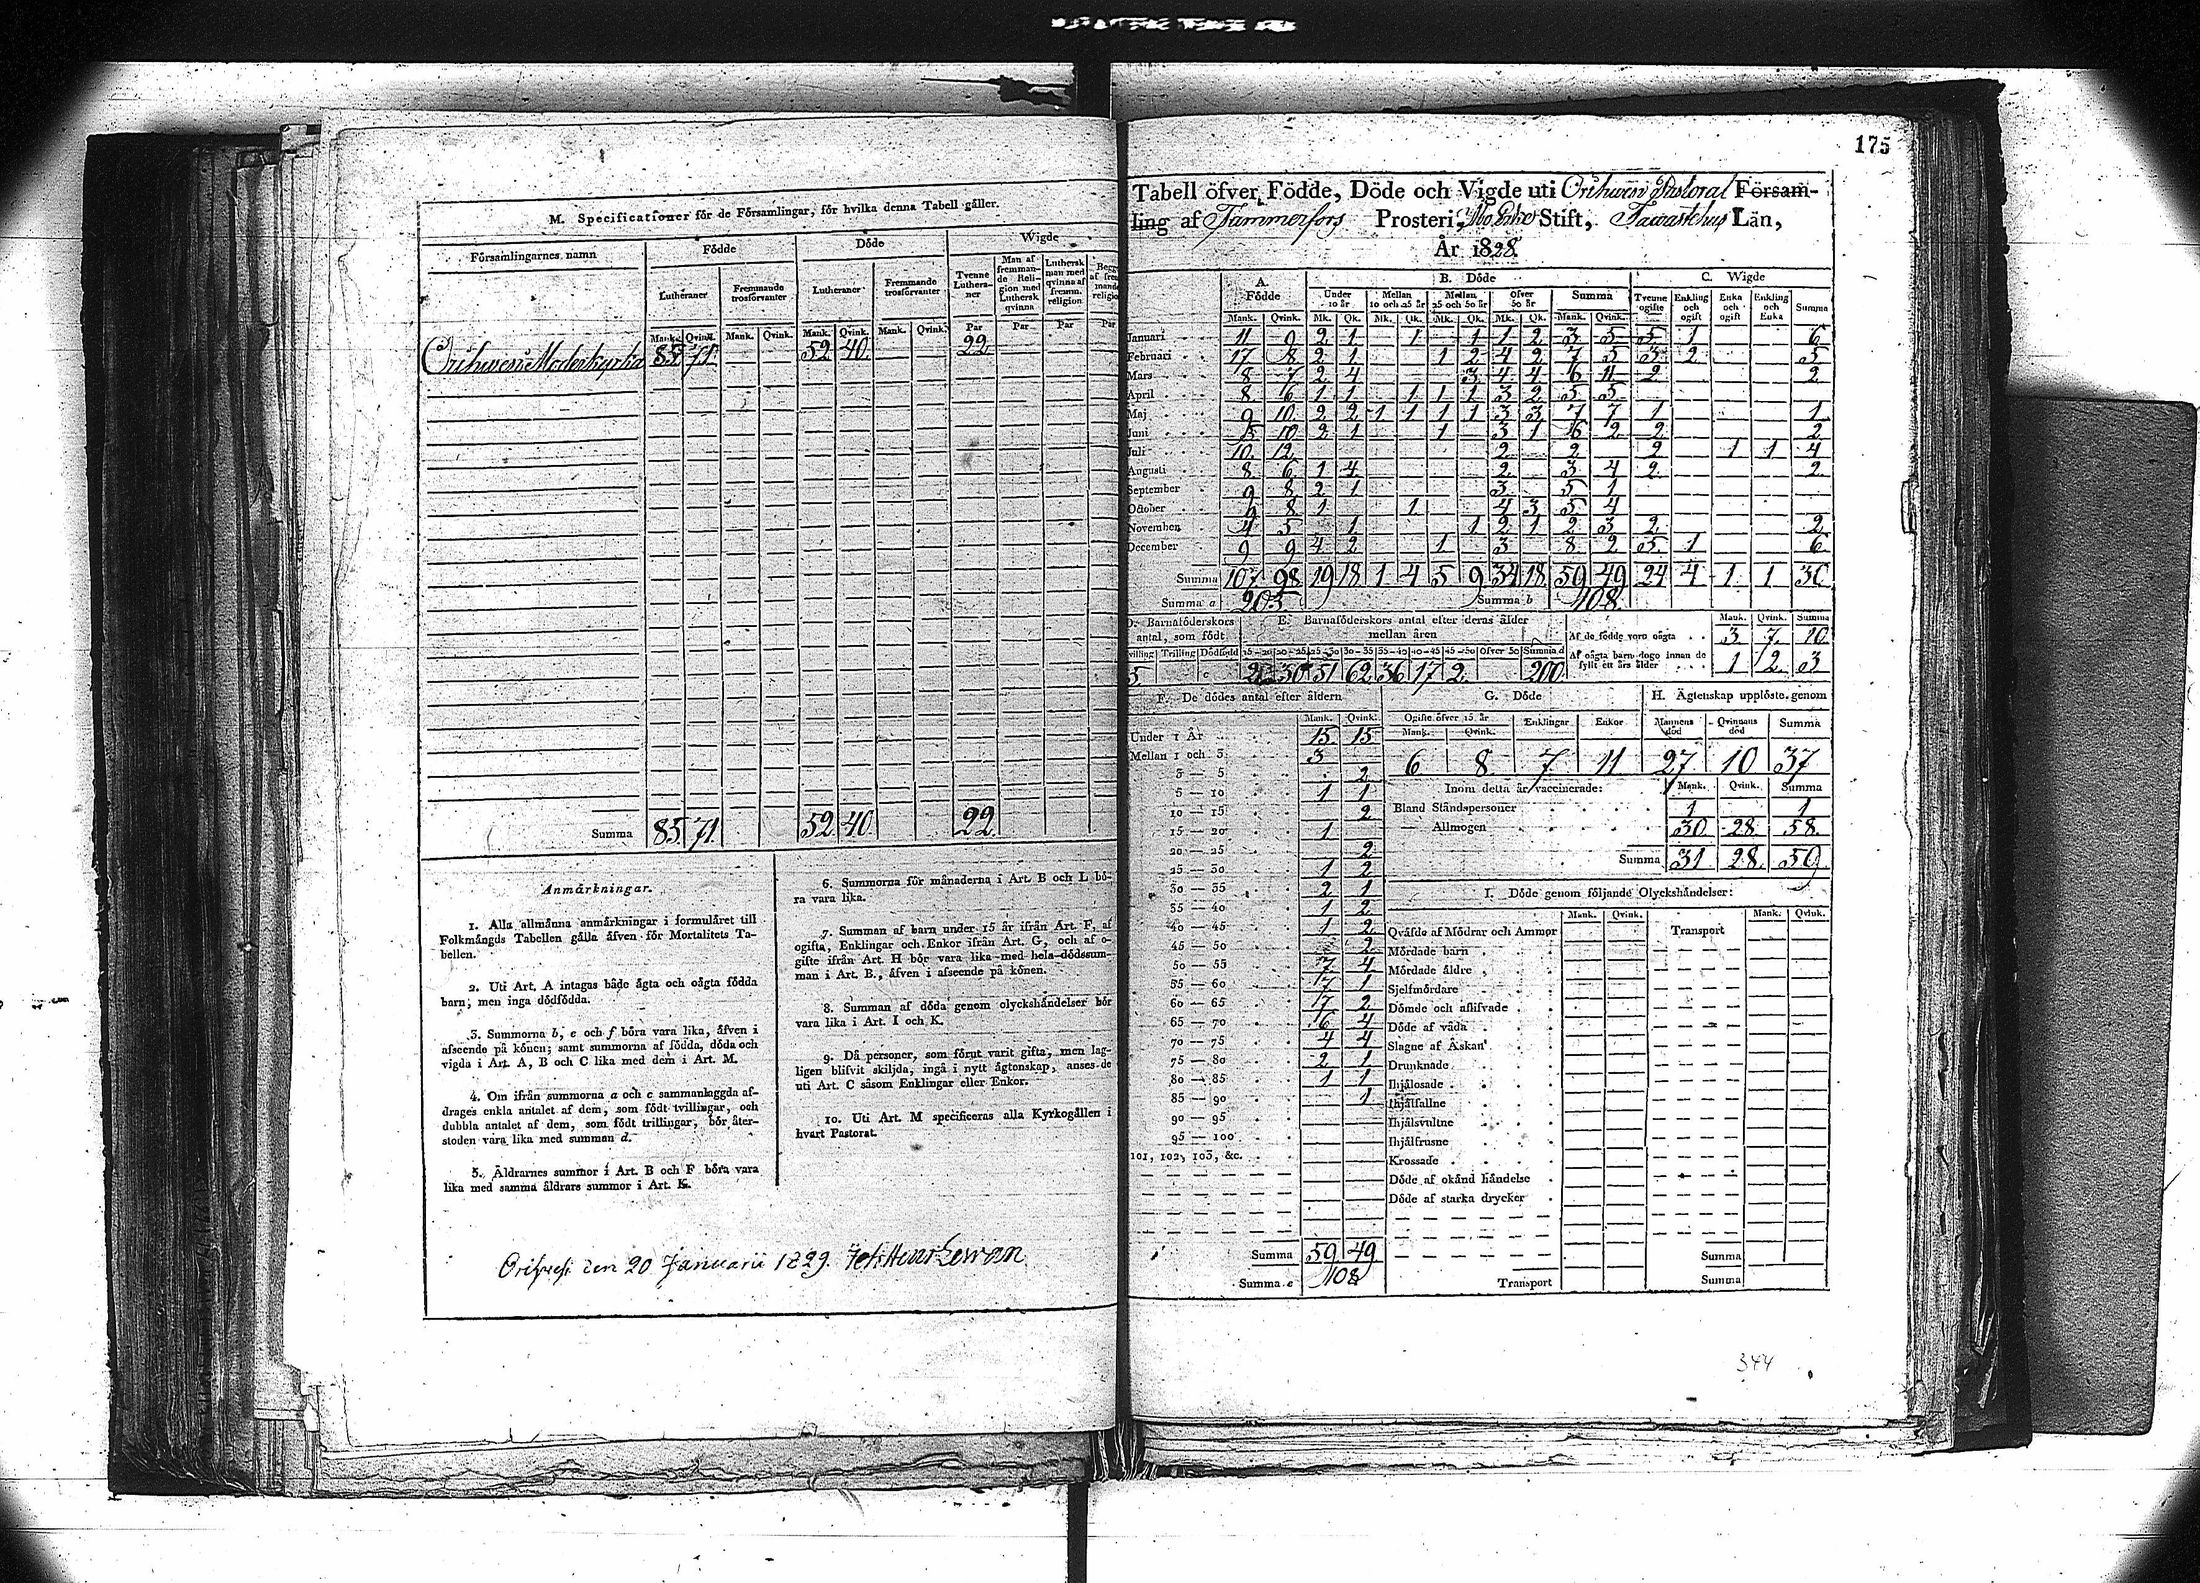 M. Specificationer för de Församlingar, för hvilka denna Tabell gäller.
Församlingarnes namn | Födde | Döde | Wigde
Lutheraner | Fremmande trosförvanter | Lutheraner | Fremmande trosförvanter | Tvenne Lutheraner | Man af fremmande Religion med Luthersk qvinna | Luthersk man med qvinna af fremm. religion
Mank. Qvink. Mank. Qvink. Mank. Qvink. Mank. Qvink. Par Par Par Par
Orihvesi Moderkyrka 85 71 52 40 22
Summa 85 71 52 40 22
Anmärkningar.
1. Alla allmänna anmärkningar i formuläret till
Folkmängds Tabellen gälla äfven för Mortalitets Ta-
bellen.
2. Uti Art. A intagas både ägta och oägta födda
barn, men inga dödfödda.
3. Summorna b, e och f böra vara lika, äfven i
afseende på könen; samt summorna af födda, döda och
vigda i Art. A, B och C lika med dem i Art. M.
4. Om ifrån summorna a och c sammanlaggda af-
drages enkla antalet af dem, som födt tvillingar, och
dubbla antalet af dem, som födt trillingar, bör åter-
stoden vara lika med summan d.
5. Åldrarnes summor i Art. B och F böra vara
lika med samma åldrars summor i Art. K.
6. Summorna för månaderna i Art. B och L bö-
ra vara lika.
7. Summan af barn under 15 år ifrån Art. F, af
ogifta, Enklingar och Enkor ifrån Art. G, och af o-
gifte ifrån Art. H bör vara lika med hela dödssum-
man i Art. B., äfven i afseende på könen.
8. Summan af döda genom olyckshändelser bör
vara lika i Art. I och K.
9. Då personer, som förut varit gifta, men lag-
ligen blifvit skiljda, ingå i nytt ägtenskap, anses de
uti Art. C såsom Enklingar eller Enkor.
10. Uti Art. M specificeras alla Kyrkogällen i
hvart Pastorat.
Orihvesi den 20 Januarii 1829.
175
Tabell öfver Födde, Döde och Vigde uti Orihvesi Pastorat Försam-
ling af Tammerfors Prosteri, Åbo Erke Stift, Tawastehus Län,
År 1828.
A. Födde | B. Döde | C. Wigde
Under 10 år | Mellan 10 och 25 år | Mellan 25 och 50 år | Öfver 50 år | Summa | Tvenne ogifte | Enkling och ogift | Enka och ogift | Enkling och Enka | Summa
Mank. Qvink. Mk. Qk. Mk. Qk. Mk. Qk. Mk. Qk. Mank. Qvink.
Januari 11 9 2 1 1 1 1 2 3 5 5 1 6
Februari 17 8 2 1 1 2 4 2 7 5 3 2 5
Mars 8 7 2 4 3 4 4 6 11 2 2
April 8 6 1 1 1 1 1 3 2 5 5
Maj 9 10 2 2 1 1 1 1 3 3 7 7 1 1
Juni 5 10 2 1 1 3 1 6 2 2 2
Juli 10 12 2 2 2 1 1 4
Augusti 8 6 1 4 2 3 4 2 2
September 9 8 2 1 3 5 1
October 9 8 1 1 4 3 5 4
November 4 5 1 1 2 1 2 3 2 2
December 9 9 4 2 1 3 8 2 5 1 6
Summa 107 98 19 18 1 4 5 9 34 18 59 49 24 4 1 1 30
Summa a 205 Summa b 108
D. Barnaföderskors antal, som födt | E. Barnaföderskors antal efter deras ålder mellan åren
Trilling Dödfödd 15—20 20—25 25—30 30—35 35—40 40—45 45—50 öfver 50 Summa d
5 2 30 51 62 36 17 2 200
Mank. Qvink. Summa
Af de födde voro oägta 3 7 10
Af oägta barn dogo innan de fyllt ett års ålder 1 2 3
F. De dödes antal efter åldern
Mank. Qvink.
Under 1 År 15 15
Mellan 1 och 3 3
3 — 5 2
5 — 10 1 1
10 — 15 2
15 — 20 1
20 — 25 2
25 — 30 1 2
30 — 35 2 1
35 — 40 1 2
40 — 45 1 2
45 — 50 2
50 — 55 7 4
55 — 60 7 1
60 — 65 7 2
65 — 70 6 4
70 — 75 4 4
75 — 80 2 1
80 — 85 1 1
85 — 90 1
90 — 95
95 — 100
101, 102, 103, &c.
Summa 59 49
Summa e 108
G. Döde | H. Ägtenskap upplöste genom
Ogifte öfver 15 år | Enklingar | Enkor | Mannens död | Qvinnans död | Summa
Mank. Qvink.
6 8 7 11 27 10 37
Inom detta år vaccinerade: Mank. Qvink. Summa
Bland Ståndspersoner 1 1
— Allmogen 30 28 58
Summa 31 28 59
I. Döde genom följande Olyckshändelser:
Mank. Qvink. Mank. Qvink.
Qväfde af Mödrar och Ammor Transport
Mördade barn
Mördade äldre
Sjelfmördare
Dömde och aflifvade
Döde af våda
Slagne af Åskan
Drunknade
Ihjälosade
Ihjälfallne
Ihjälsvultne
Ihjälfrusne
Krossade
Döde af okänd händelse
Döde af starka drycker
Summa
Transport Summa
344